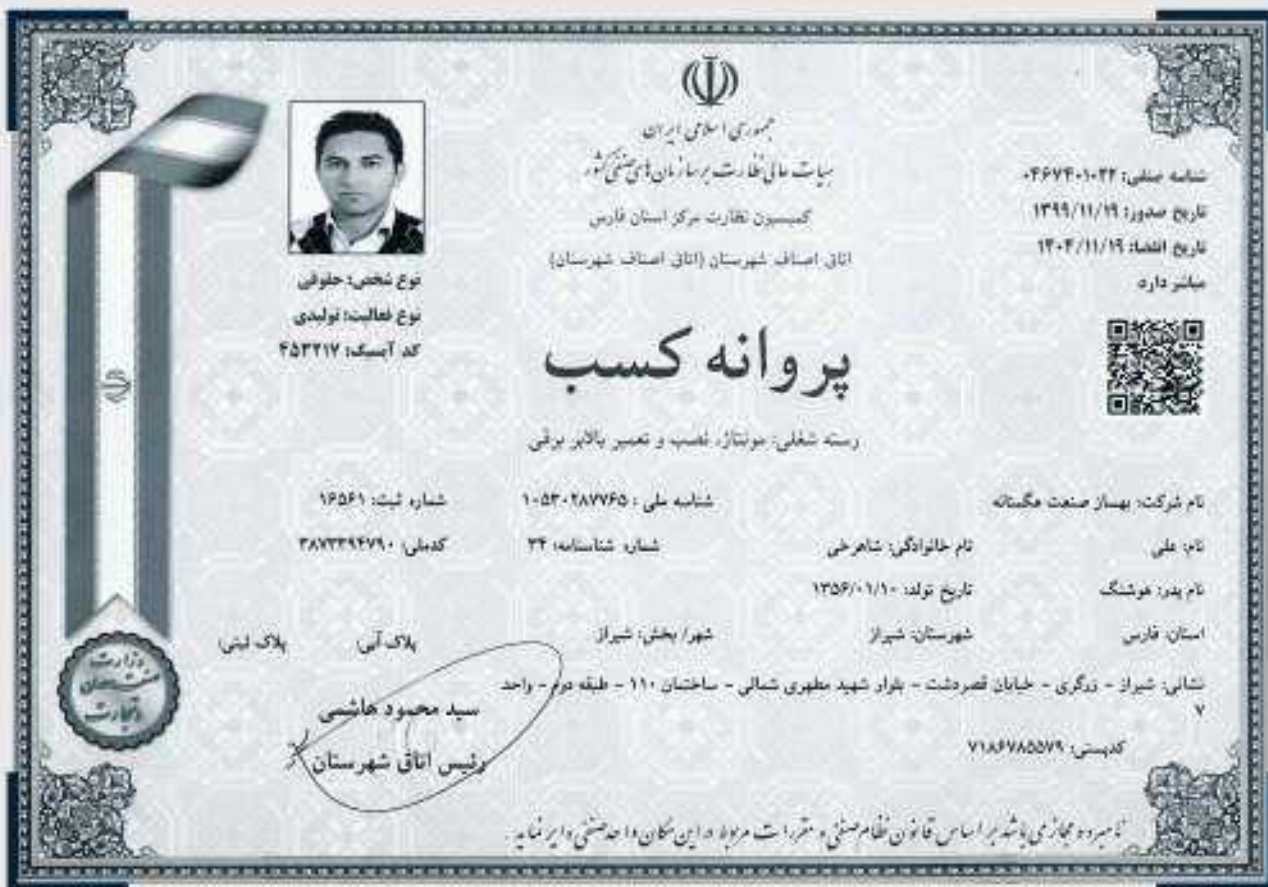 جمهوری اسلامی ایران
هیات عالی نظارت بر سازمان های صنفی کشور
کمیسیون نظارت مرکز استان فارس
اتاق اصناف شهرستان (اتاق اصناف شهرستان)
شناسه صنفی: ۰۴۶۷۴۰۱۰۲۲
تاریخ صدور: ۱۳۹۹/۱۱/۱۹
تاریخ انقضا: ۱۴۰۴/۱۱/۱۹
مباشر دارد
نوع شخص: حقوقی
نوع فعالیت: تولیدی
کد آیسیک: ۴۵۳۲۱۷
پروانه کسب
رسته شغلی: مونتاژ، نصب و تعمیر بالابر برقی
نام شرکت: بهساز صنعت هگمتانه شناسه ملی : ۱۰۵۳۰۲۸۷۷۶۵ شماره ثبت: ۱۶۵۶۱
نام: علی نام خانوادگی: شاهرخی شماره شناسنامه: ۳۴ کدملی: ۳۸۷۳۳۹۴۷۹۰
نام پدر: هوشنگ تاریخ تولد: ۱۳۵۶/۰۱/۱۰
استان: فارس شهرستان: شیراز شهر/ بخش: شیراز پلاک آبی پلاک ثبتی
نشانی: شیراز - زرگری - خیابان قصردشت - بلوار شهید مطهری شمالی - ساختمان ۱۱۰ - طبقه دوم - واحد
۷
کدپستی: ۷۱۸۶۷۸۵۵۷۹
سید محمود هاشمی
رئیس اتاق شهرستان
نامبرده مجاز می باشد بر اساس قانون نظام صنفی و مقررات مربوط در این مکان واحد صنفی دایر نماید.
وزارت
صنعت، معدن
و تجارت